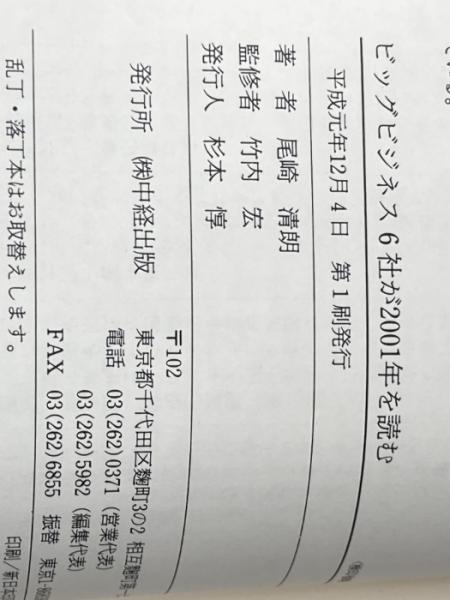 ビッグビジネス6社が2001年を読む
平成元年12月4日 第1刷発行
著者 尾崎清朗
監修者 竹内宏
発行人 杉本惇
発行所 ㈱中経出版
〒102
東京都千代田区麴町3の2 相互麴町第一
電話 03(262)0371(営業代表)
03(262)5982(編集代表)
FAX 03(262)6855 振替 東京1-
乱丁・落丁本はお取替えします。
印刷/新日本